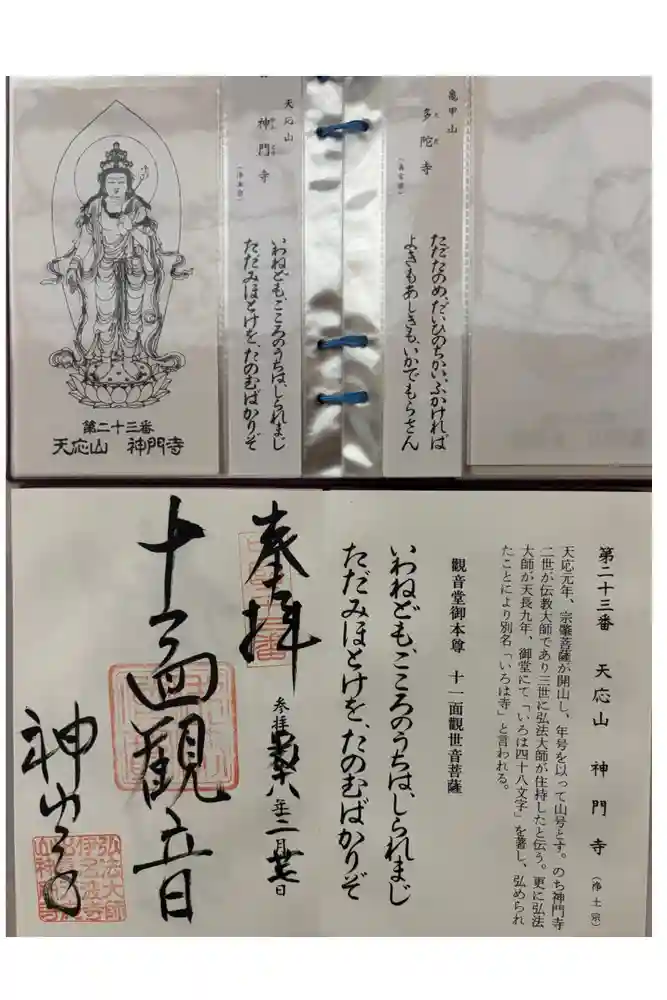 亀甲山
多陀寺
ただたのめ、だいひのちかい、ふかければ
よきもあしきも、いかでもらさん
天応山
神門寺
(浄土宗)
いわねどもごころのうちは、しられまじ
ただみほとけを、たのむばかりぞ
第二十三番
天応山 神門寺
第二十三番 天応山 神門寺 (浄土宗)
天応元年、宗肇菩薩が開山し、年号を以って山号とす。のち神門寺
二世が伝教大師であり三世に弘法大師が住持したと伝う。更に弘法
大師が天長九年、御堂にて「いろは四十八文字」を著し、弘められ
たことにより別名「いろは寺」と言われる。
観音堂御本尊 十一面観世音菩薩
いわねどもごころのうちは、しられまじ
ただみほとけを、たのむばかりぞ
奉拝
参拝
八年二月
日
十一面観音
神門寺
弘法大師